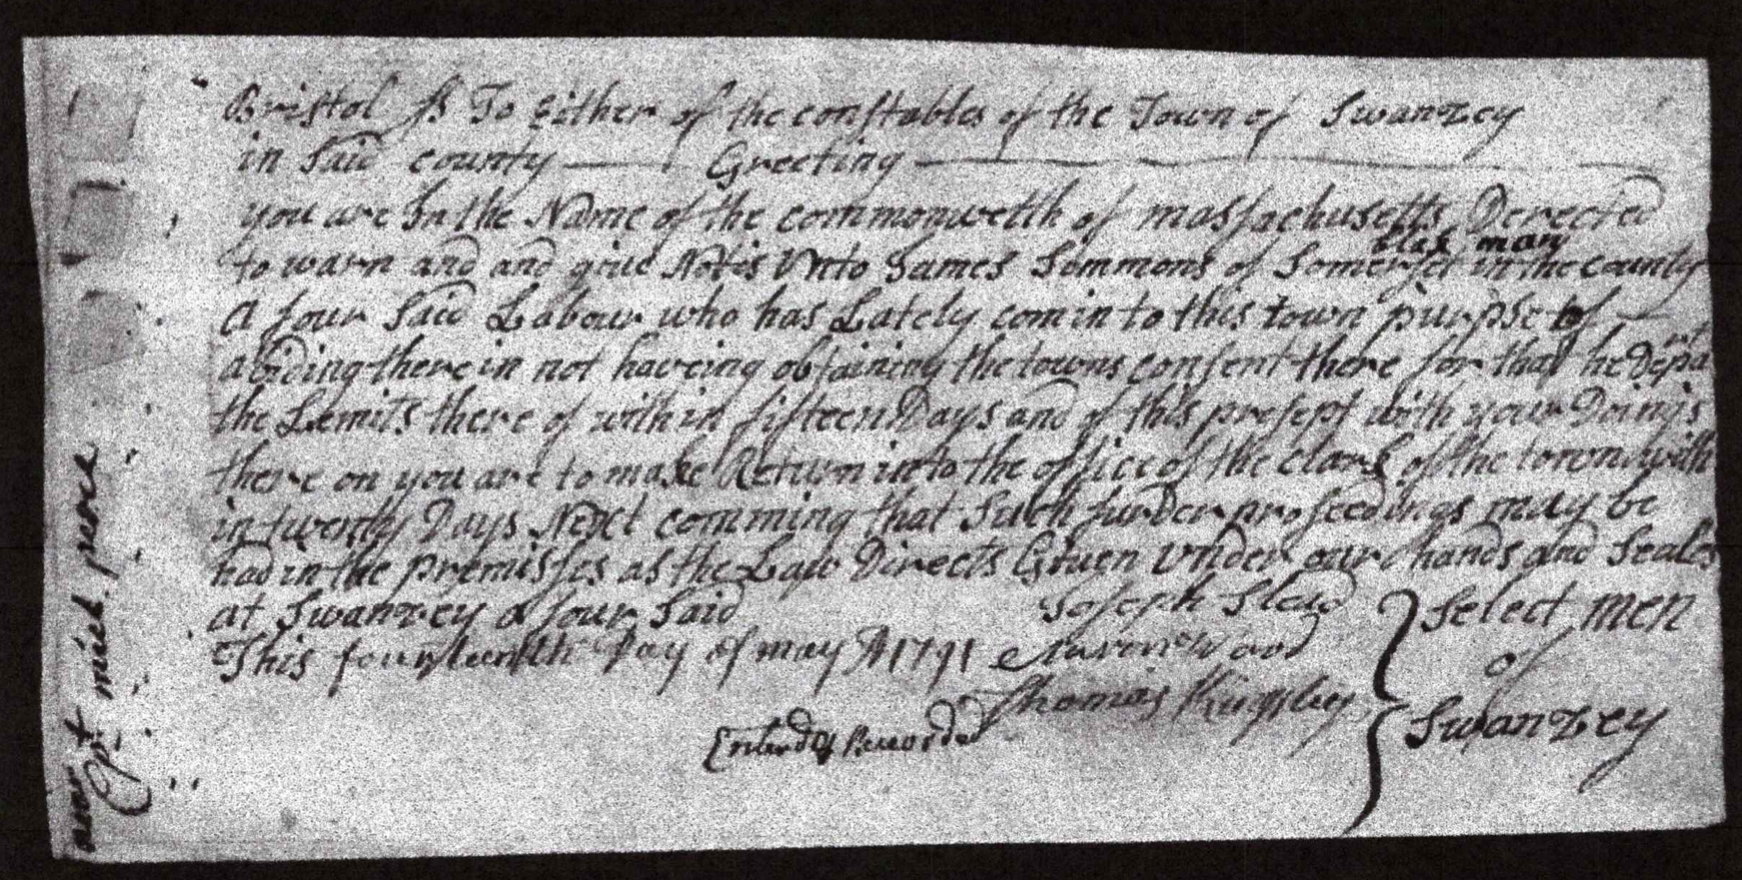 Bristol ss To Either of the constables of the Town of Swanzey
in Said county Greeting
you are In the Name of the commonwelth of massachusetts Derected
to warn and and give Notis Unto James Semmons of Somerset in the county
blak man
A four Said Labour who has Lately com in to this town purpse of
abiding there in not haveing obtaining the towns consent there for that he Depart
the Lemits there of with in fifteen Days and of this presept with your Doings
there on you are to make Return into the office of the clark of the town with
in twenty Days Next comming that Such furder profeedings may be
had in the premisses as the Law Directs Given under our hands and Seales
at Swanzey a four Said
This fourteenth Day of may A 1791
Joseph Slead
Aaron Wood
Thomas Kingsley
Select men
of
Swanzey
Enterd & Recorded